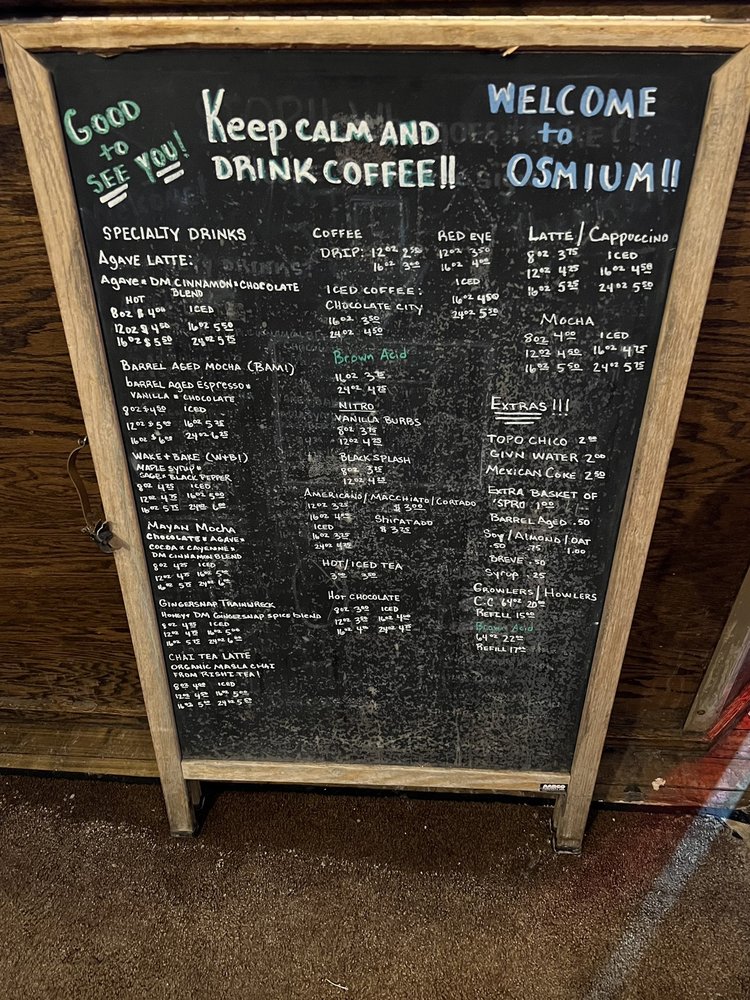 GOOD
to
SEE YOU!
Keep CALM AND
DRINK COFFEE!!
WELCOME
to
OSMIUM!!
SPECIALTY DRINKS
AGAVE LATTE:
AGAVE * DM CINNAMON * CHOCOLATE
BLEND
HOT
8oz $4.00 ICED
12oz $4.50 16oz 5.50
16oz $5.50 24oz 5.75
BARREL AGED MOCHA (BAM!)
bARREL AGED ESPRESSO *
VANILLA * CHOCOLATE
8oz $4.50 ICED
12oz $5.00 16oz 5.75
16oz $6.00 24oz 6.25
WAKE + BAKE (W+B!)
MAPLE SYRUP *
SAGE * BLACK PEPPER
8oz 4.25 ICED
12oz 4.75 16oz 5.00
16oz 5.75 24oz 6.00
MAYAN MOCHA
CHOCOLATE * AGAVE *
COCOA * CAYENNE *
DM CINNAMON BLEND
8oz 4.25 ICED
12oz 4.75 16oz
16oz 5.75 24oz
GINGERSNAP TRAINWRECK
HONEY * DM GINGERSNAP SPICE BLEND
8oz 4.25 ICED
12oz 4.75 16oz 5.00
16oz 5.75 24oz 6.00
CHAI TEA LATTE
ORGANIC MASLA CHAI
FROM RISHI TEA!
8oz 4.00 ICED
12oz 4.50 16oz 5.00
16oz 24oz
COFFEE
DRIP: 12oz 2.50
16oz 3.00
ICED COFFEE:
CHOCOLATE CITY
16oz 3.50
24oz 4.50
Brown Acid
16oz 3.75
24oz 4.75
NITRO
VANILLA BURBS
8oz 3.75
12oz 4.75
BLACK SPLASH
8oz 3.75
12oz 4.75
AMERICANO/MACCHIATO/CORTADO
12oz 3.25 $3.00
16oz 4.00 SHIRATADO
ICED $3.75
16oz 3.25
24oz 4.25
HOT/ICED TEA
3.00 3.50
HOT CHOCOLATE
8oz 3.00 ICED
12oz 3.50 16oz 4.25
16oz 4.00 24oz 4.75
RED EYE
12oz 3.50
16oz 4.00
ICED
16oz 4.50
24oz 5.25
LATTE/CAPPUCCINO
8oz 3.75 ICED
12oz 4.25 16oz 4.50
16oz 5.25 24oz 5.50
MOCHA
8oz 4.00 ICED
12oz 4.50 16oz 4.75
16oz 5.50 24oz 5.75
EXTRAS!!!
TOPO CHICO 2.00
GIVN WATER 2.00
MEXICAN COKE 2.50
EXTRA BASKET OF
'SPRO 1.00
BARREL AGED .50
SOY/ALMOND/OAT
.50 .75 1.00
BREVE .50
SYRUP .25
GROWLERS/HOWLERS
C.C. 64oz 20.00
REFILL 15.00
Brown Acid
64oz 22.00
REFILL 17.00
AARCO